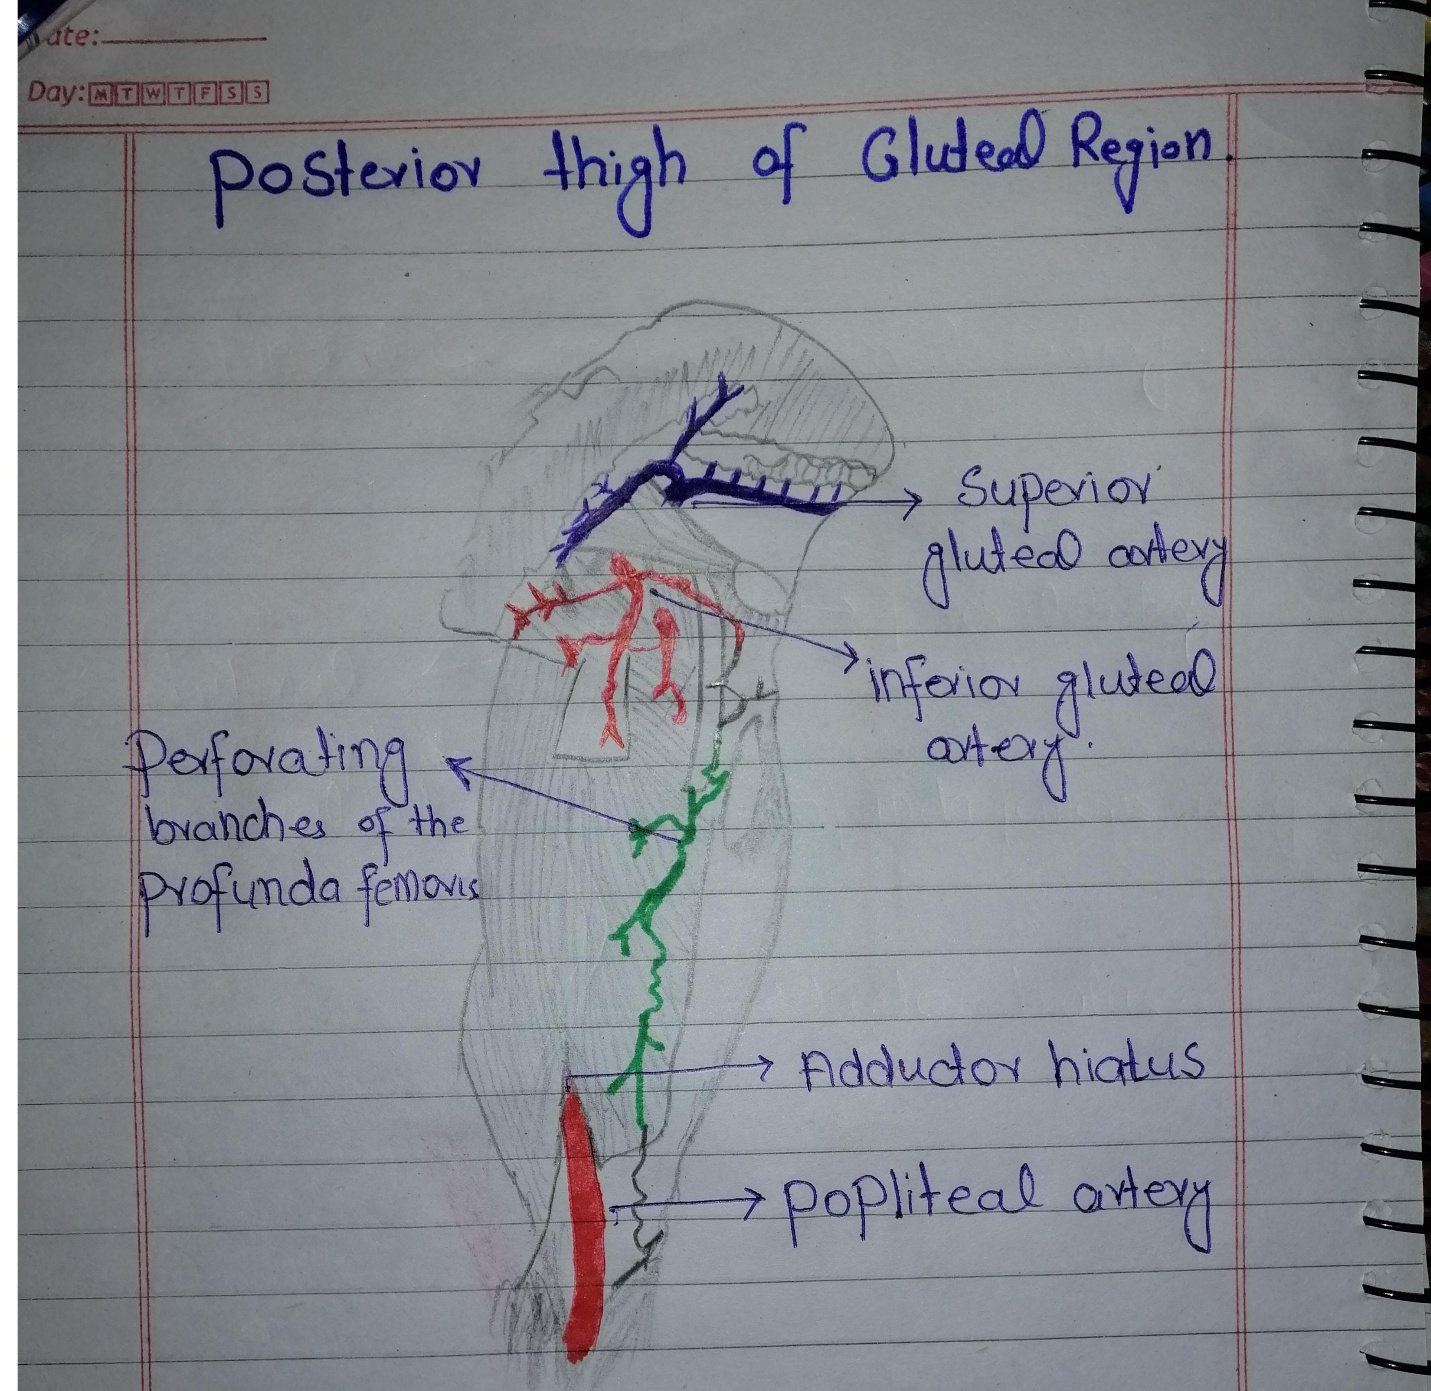 ate:
Day: M T W T F S S
Posterior thigh of Gluteal Region.
Superior
gluteal artery
inferior gluteal
artery.
Perforating
branches of the
profunda femoris
Adductor hiatus
Popliteal artery